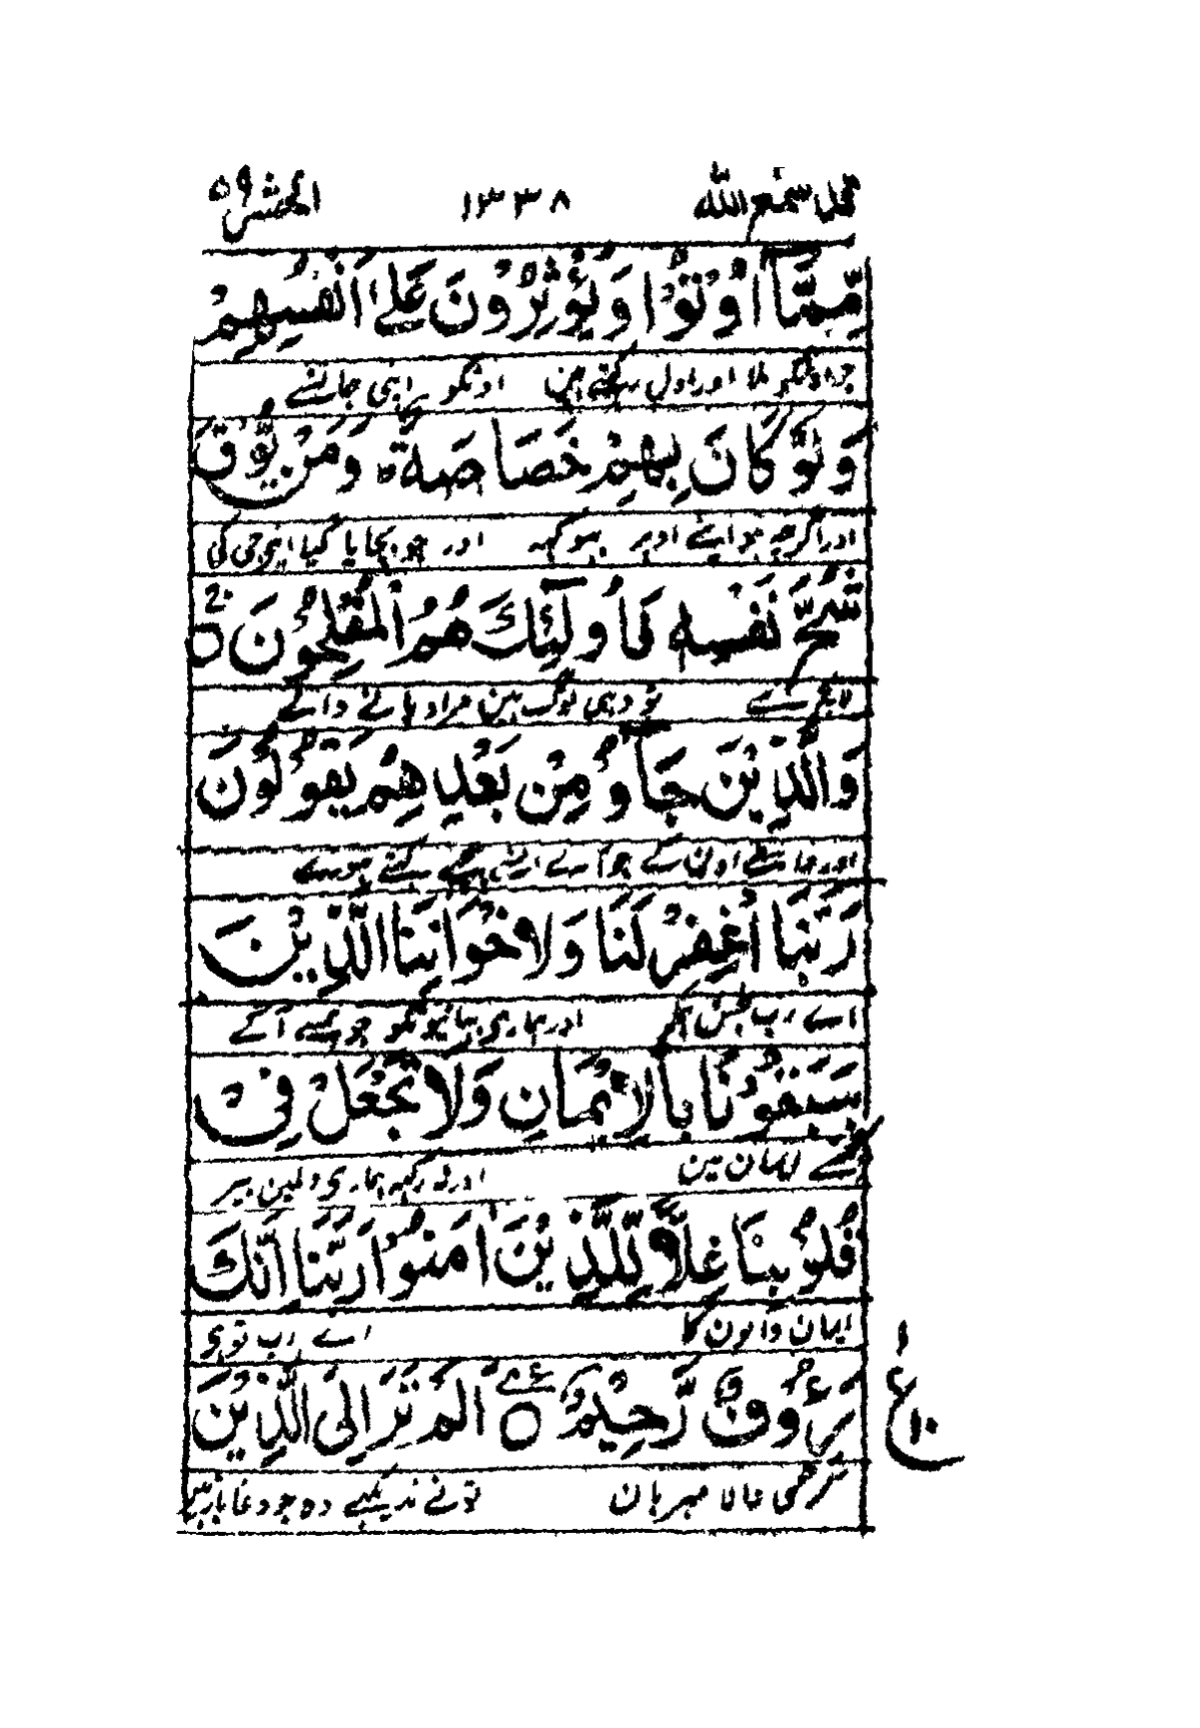 قد سمع الله ١٣٣٨ الحشر ٥٩
مِّمَّآ اُوْتُوْا وَيُؤْثِرُوْنَ عَلٰٓى اَنْفُسِهِمْ
جو اونکو ملا اور اول رکھتے ہین اونکو اپنی جان سے
وَلَوْ كَانَ بِهِمْ خَصَاصَةٌ وَمَنْ يُّوْقَ
اور اگرچہ ہو اپنے اوپر بھوکہہ اور جو بچایا گیا اپنی جی کی
شُحَّ نَفْسِهٖ فَاُولٰٓئِكَ هُمُ الْمُفْلِحُوْنَ
لالچ سے تو وہی لوگ ہین مراد پانے والے
وَالَّذِيْنَ جَآءُوْ مِنْ بَعْدِهِمْ يَقُوْلُوْنَ
اور واسطے اون کے جو آے اونسے پیچھے کہتے ہوے
رَبَّنَا اغْفِرْ لَنَا وَلِاِخْوَانِنَا الَّذِيْنَ
اے رب بخش ہمکو اور ہماری بھائیونکو جو ہمسے آگے
سَبَقُوْنَا بِالْاِيْمَانِ وَلَا تَجْعَلْ فِىْ
ایمان مین اور نہ رکہہ ہماری دلمین بیر
قُلُوْبِنَا غِلًّا لِّلَّذِيْنَ اٰمَنُوْا رَبَّنَا اِنَّكَ
ایمان والون کا اے رب توہی
رَءُوْفٌ رَّحِيْمٌ اَلَمْ تَرَ اِلَى الَّذِيْنَ
نرمی والا مہربان تونے نہ دیکھے وہ جو دغاباز ہین